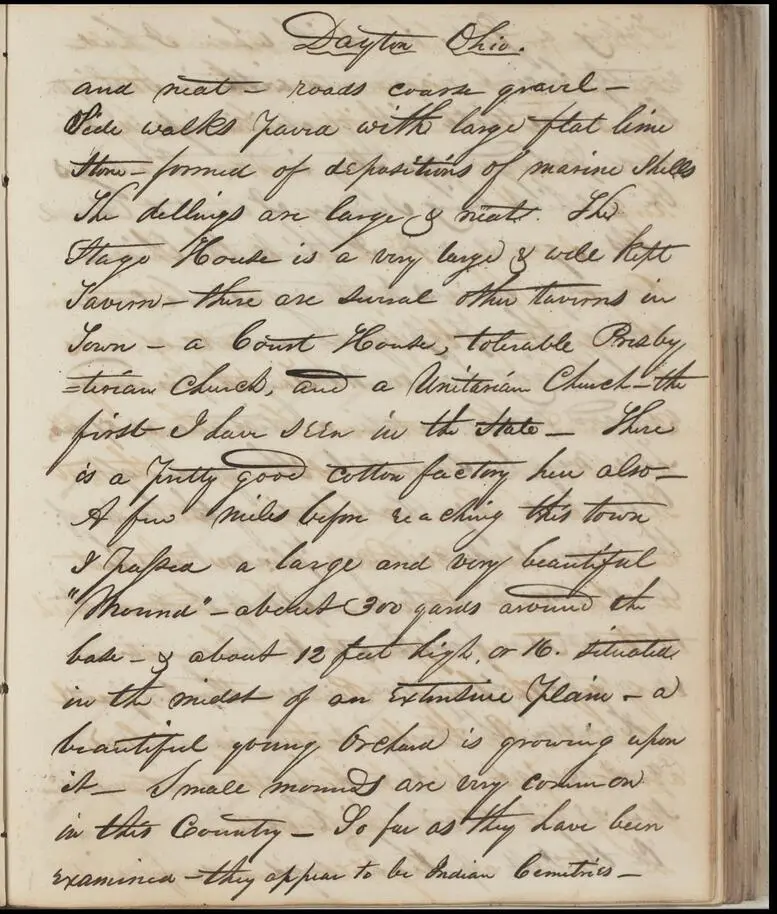 Dayton Ohio.
and neat - roads coarse gravel -
Side walks paved with large flat lime
stone - formed of depositions of marine shells
The dellings are large & neat. The
Stage House is a very large & well kept
Tavern - there are several other taverns in
Town - a Court House, tolerable Presby
=terian Church, and a Unitarian Church - the
first I have seen in the State - There
is a pretty good cotton factory here also -
A few miles before reaching this town
I passed a large and very beautiful
"Mound" - about 300 yards around the
base - & about 12 feet high, or 16. situated
in the midst of an extensive plain - a
beautiful young Orchard is growing upon
it - Small mounds are very common
in this Country - So far as they have been
examined - they appear to be Indian Cemetries -